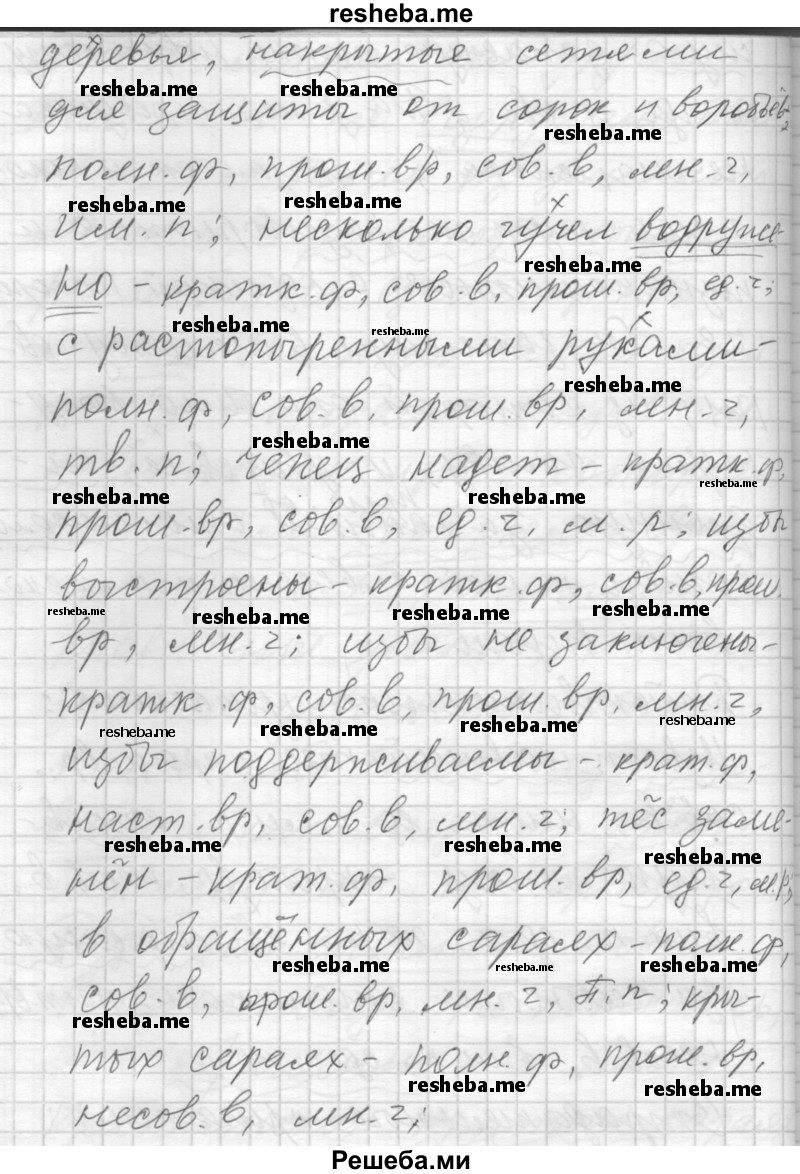 resheba.me
деревья, накрытые сетями
resheba.me resheba.me
для защиты от сорок и воробьёв,
resheba.me
полн. ф, прош. вр, сов. в, мн. ч,
resheba.me resheba.me
им. п; несколько чучел водруже-
resheba.me
но - кратк. ф, сов. в, прош. вр, ед. ч;
resheba.me resheba.me
с растопыренными руками -
resheba.me
полн. ф, сов. в, прош. вр, мн. ч,
resheba.me
тв. п; чепец надет - кратк. ф,
resheba.me resheba.me resheba.me
прош. вр, сов. в, ед. ч, м. р; избы
выстроены - кратк. ф, сов. в, прош.
resheba.me resheba.me resheba.me resheba.me
вр, мн. ч; избы не заключены -
кратк. ф, сов. в, прош. вр, мн. ч,
resheba.me resheba.me resheba.me resheba.me
избы поддерживаемы - крат. ф,
наст. вр, сов. в, мн. ч; тёс заме-
resheba.me resheba.me resheba.me
нён - крат. ф, прош. вр, ед. ч, м. р;
в обращённых сараях - полн. ф,
resheba.me resheba.me resheba.me
сов. в, прош. вр, мн. ч, П. п; кры-
resheba.me
тых сараях - полн. ф, прош. вр,
resheba.me resheba.me
несов. в, мн. ч;
Решеба.ми